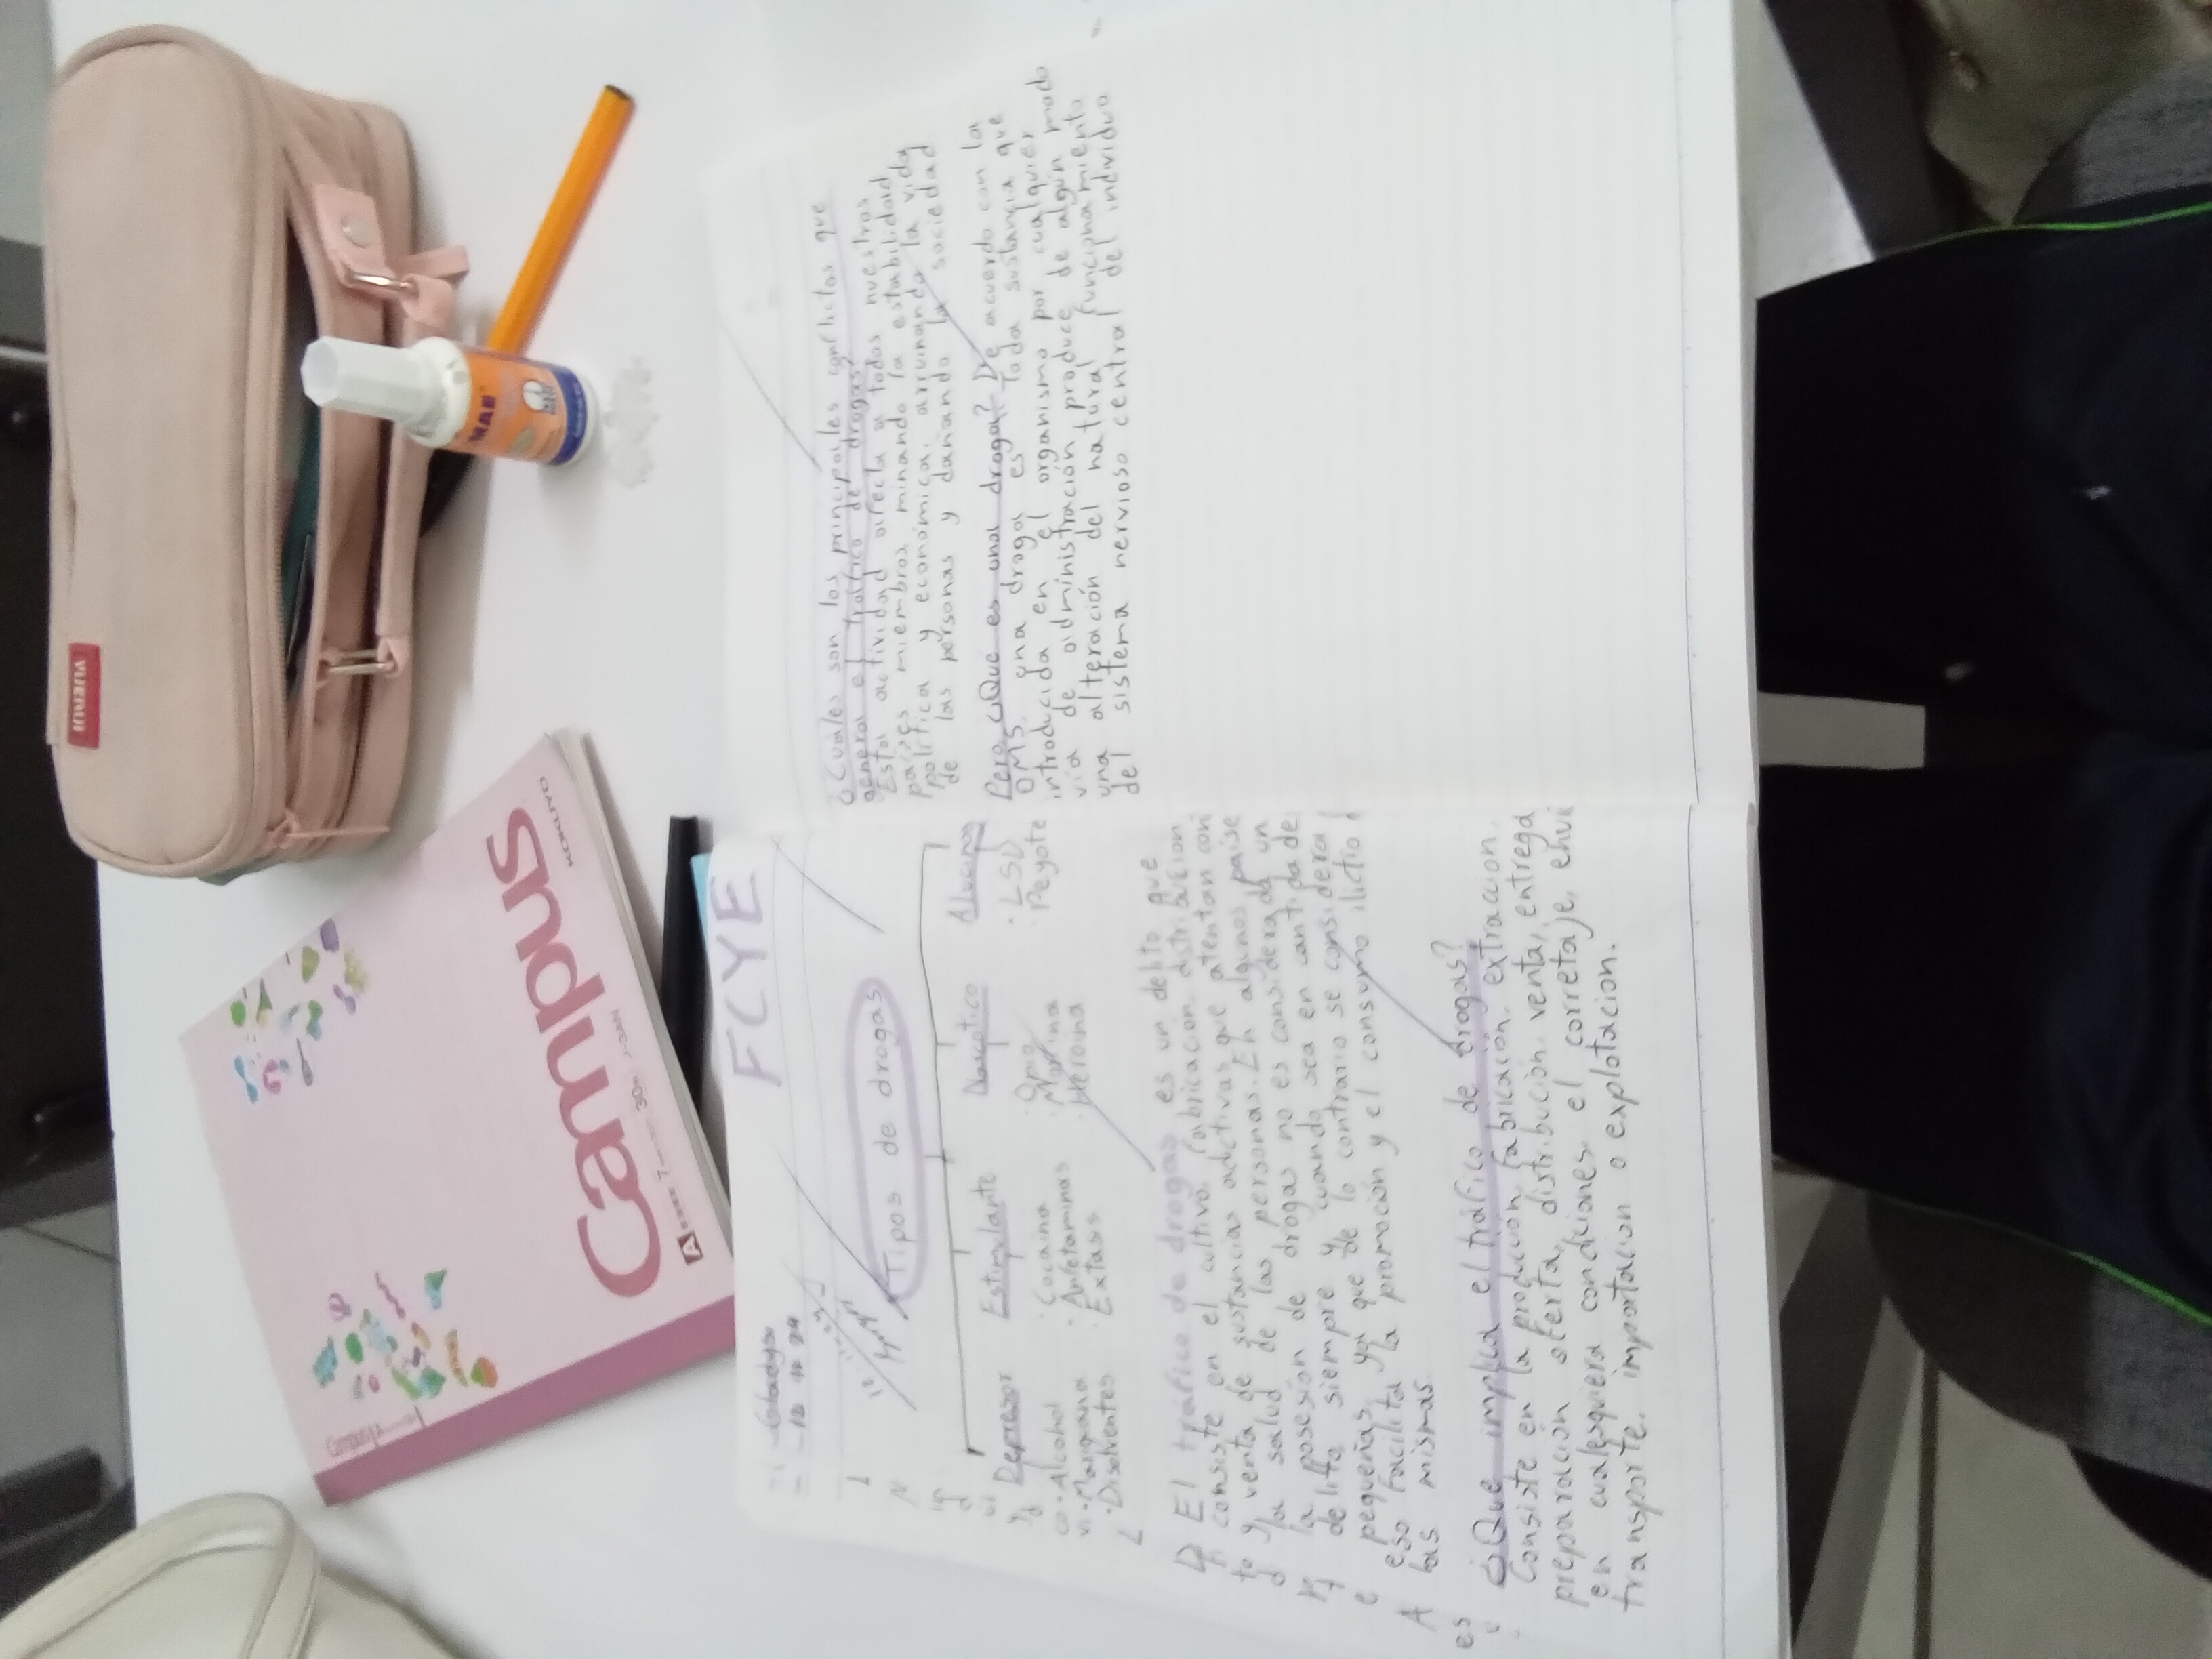 FCYE
Gladys
12 11 24
Tipos de drogas
Depresor
Estimulante
Narcoptico
· Alcohol
· Mariguana
· Disolventes
· Cocaina
· Anfetaminas
· Extasis
· Opio
· Morfina
· Heroina
· LSD
· Peyote
El tráfico de drogas es un delito que
consiste en el cultivo, fabricación, distribucion
y venta de sustancias adictivas que atentan con
la salud de las personas. En algunos paise
la posesión de drogas no es considerada un
delito siempre y cuando sea en cantidade
pequeñas, ya que de lo contrario se considera
eso facilita la promoción y el consumo ilictio d
las mismas.
¿Que implica el tráfico de drogas?
Consiste en la produccion, fabricacion, extraccion,
preparación oferta, distribución, venta, entrega
en cualesquiera condiciones, el corretaje, envi
transporte, importacion o explotacion.
¿Cuales son los principales conflictos que
genera el trafico de drogas?
Esta actividad afecta a todos nuestros
países miembros, minando la estabilidad
política y económica, arruinando la vida
de las personas y dañando la sociedad
Pero ¿Que es una droga? De acuerdo con la
OMS, una droga es toda sustancia que
introducida en el organismo por cualquier
vía de administración produce de algún modo
una alteración del natural funcionamiento
del sistema nervioso central del individuo
VUERUI
Campus
KOKUYO